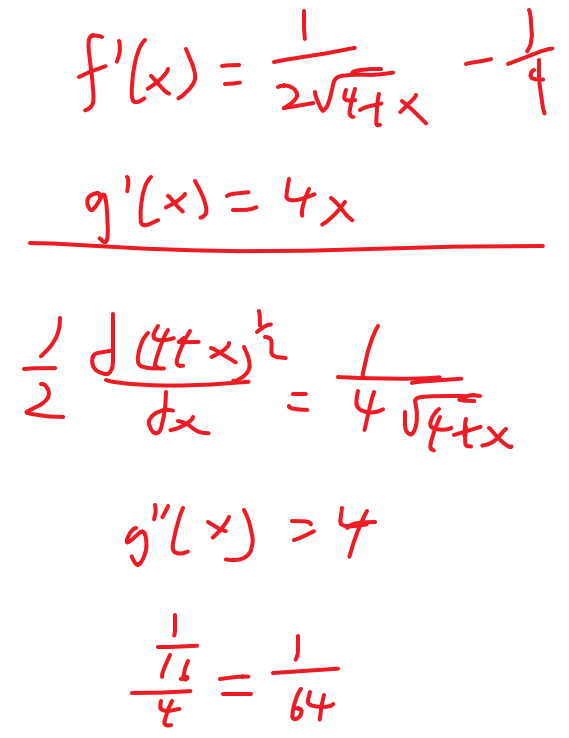 f'(x) = 1/(2√(4+x)) - 1/4
g'(x) = 4x
1/2 d(4+x)^(1/2)/dx = 1/(4√(4+x))
g''(x) = 4
(1/16)/4 = 1/64